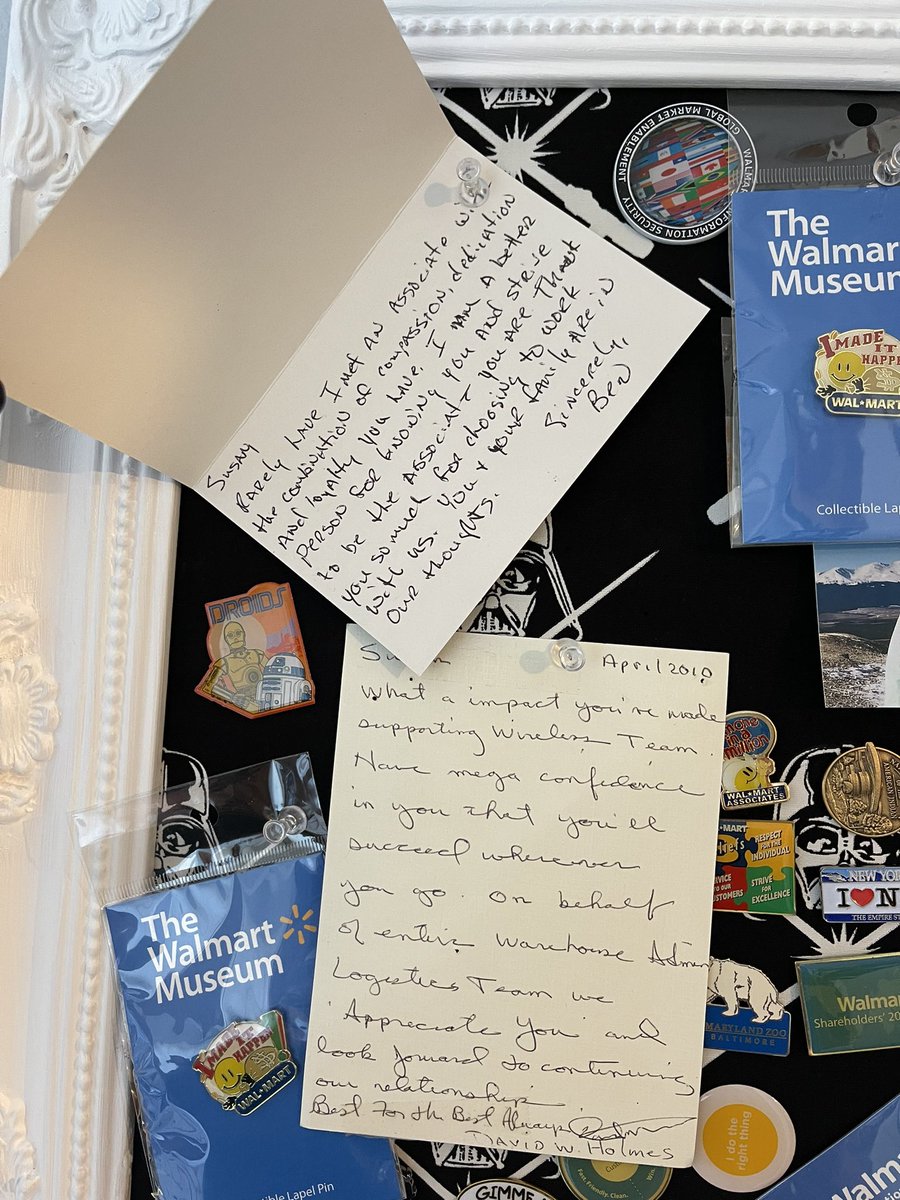 Susan
Rarely have I met an associate wi
the combination of compassion, dedication
and loyalty you have. I am a better
person for knowing you and strive
to be the associate you are. Thank
you so much for choosing to work
with us. You & your family are in
our thoughts.
Sincerely,
Ben
April 2010
What a impact you've made
supporting Wireless Team.
Have mega confidence
in you that you'll
succeed wherever
you go. On behalf
of entire Warehouse Admin
Logistics Team we
Appreciate You and
look forward to continuing
our relationship.
Best For the Best Always
David W. Holmes
GLOBAL MARKET ENABLEMENT
WALMAR
INFORMATION SECURITY
The
Walmart
Museum
I MADE
IT
HAPPE
WAL★MART
Collectible Lape
DROIDS
The
Walmart
Museum
I MADE
IT
HAPPE
WAL★MART
ible Lapel Pin
one
in a
million
WAL-MART
ASSOCIATES
MART
efs
RESPECT
FOR THE
INDIVIDUAL
VICE
TO OUR
CUSTOMERS
STRIVE
FOR
EXCELLENCE
NEW YOR
I ❤ N
THE EMPIRE ST
MARYLAND ZOO
BALTIMORE
Walmar
Shareholders' 20
I do the
right thing
Fast. Friendly. Clean.
Win.
GIMME
Walma